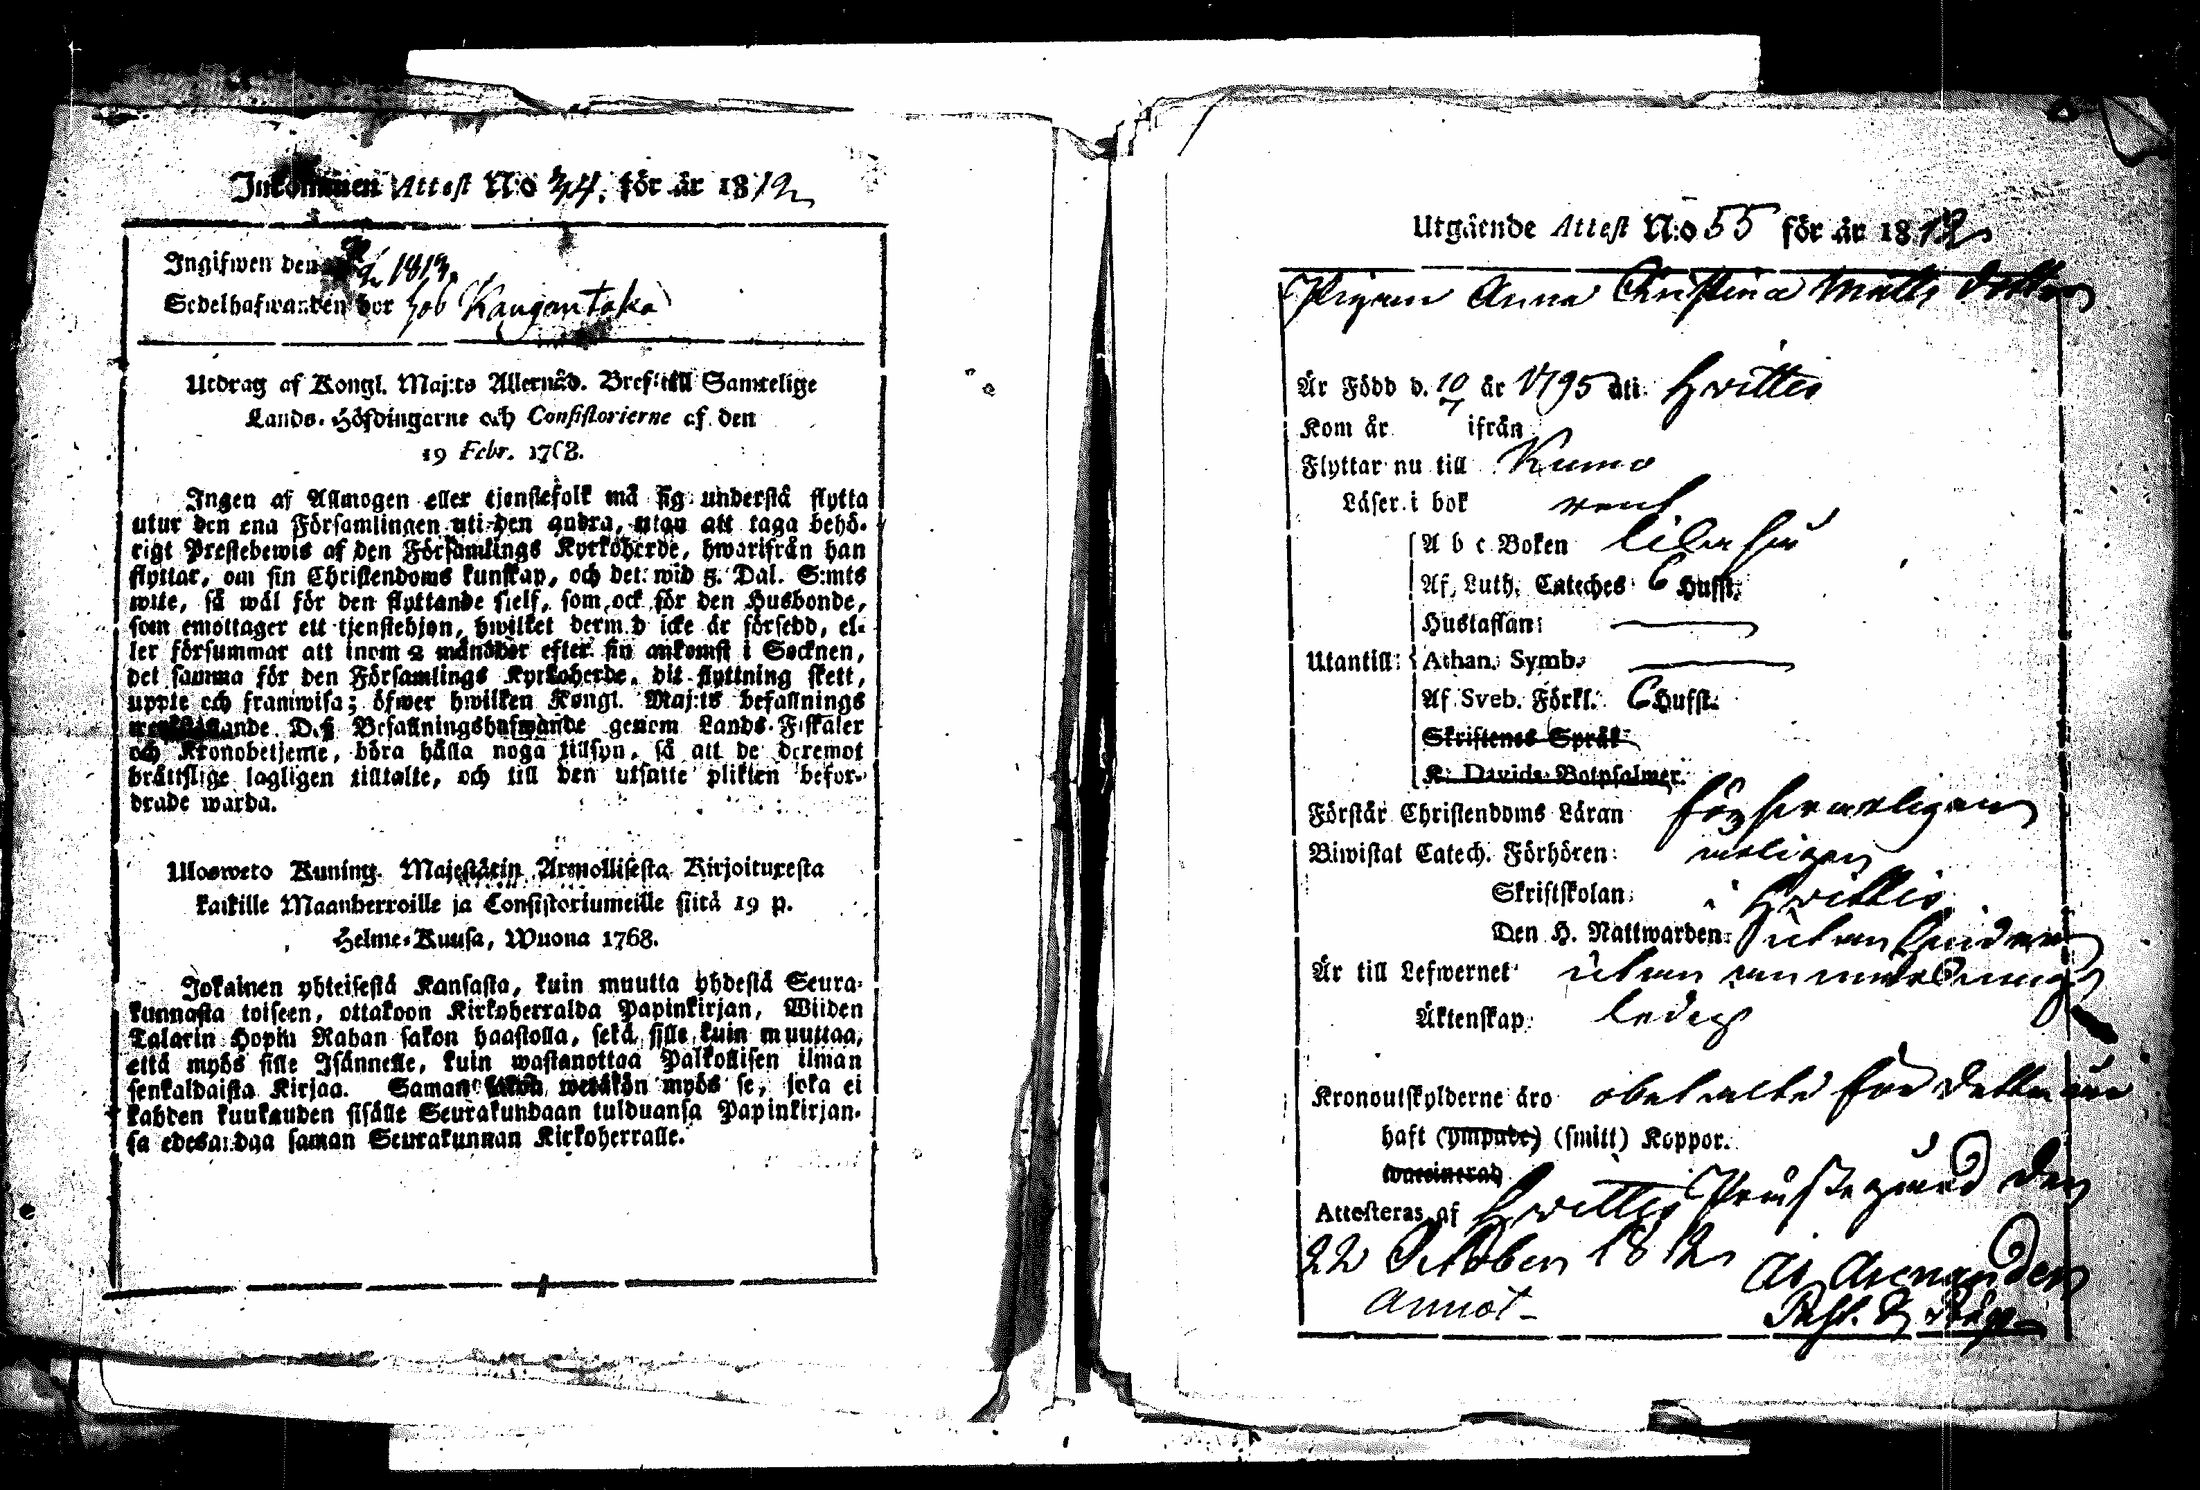 Inkommen Attest N:o 34. för år 1812
Ingifwen den 1813.
Sedelhafwanden bor hos Kangantaka
Utdrag af Kongl. Maj:ts Allernåd. Bref till Samtelige
Lands-Höfdingarne och Consistorierne af den
19 Febr. 1768.
Ingen af Allmogen eller tjenstefolk må sig understå flytta
utur den ena Församlingen uti den andra, utan att taga behö-
rigt Prestebewis af den Församlings Kyrkoherde, hwarifrån han
flyttar, om sin Christendoms kunskap, och det wid 5. Dal. S:mts
wite, så wäl för den flyttande sielf, som ock för den Husbonde,
som emottager ett tjenstehjon, hwilket derm.d icke är försedd, el-
ler försummar att inom 2 månader efter sin ankomst i Socknen,
det samma för den Församlings Kyrkoherde, dit flyttning skett,
uppte och framwisa; öfwer hwilken Kongl. Maj:ts befallnings
werkställande D.ß Befallningshafwande genom Lands-Fiskaler
och Kronobetjente, böra hålla noga tillsyn, så att de deremot
bråttslige lagligen tilltalte, och till den utsatte plikten befor-
drade warda.
Ulosweto Kuning. Majestätin Armollisesta Kirjoituxesta
kaikille Maanherroille ja Consistoriumeille siitä 19 p.
Helme-Kuusa, Wuona 1768.
Jokainen yhteisestä Kansasta, kuin muutta yhdestä Seura-
kunnasta toiseen, ottakoon Kirkoherralda Papinkirjan, Wiiden
Talarin Hopia Rahan sakon haastolla, sekä sille kuin muuttaa,
että myös sille Isännelle, kuin wastanottaa Palkollisen ilman
senkaldaista Kirjaa. Saman sakon wetäkön myös se, joka ei
kahden kuukauden sisälle Seurakundaan tulduansa Papinkirjan-
sa edesandaa saman Seurakunnan Kirkoherralle.
Utgående Attest N:o 55 för år 1812
Pigan Anna Christina Matts dotter
Är Född d. 10/7 år 1795 uti Hvittis
Kom år ifrån
Flyttar nu till Kumo
Läser i bok rent
A b c Boken lika så
Af Luth. Cateches 6 Hufst.
Hustaflan:
Utantill: Athan. Symb.
Af Sveb. Förkl. 6 Hufst.
Skriftenes Språk
K. Davids Botpsalmer.
Förstår Christendoms Läran försvarligen
Biwistat Catech. Förhören: weligen
Skriftskolan: i Hvittis
Den H. Nattwarden: utan hinder
Är till Lefwernet utan anmärkning
Äktenskap: ledig
Kronoutskylderne äro obetalte för detta år
haft (ympade) (smitt) Koppor.
waccinerad
Attesteras af Hvittis Prästegård den
22 October 1812 Arenander
Annot-